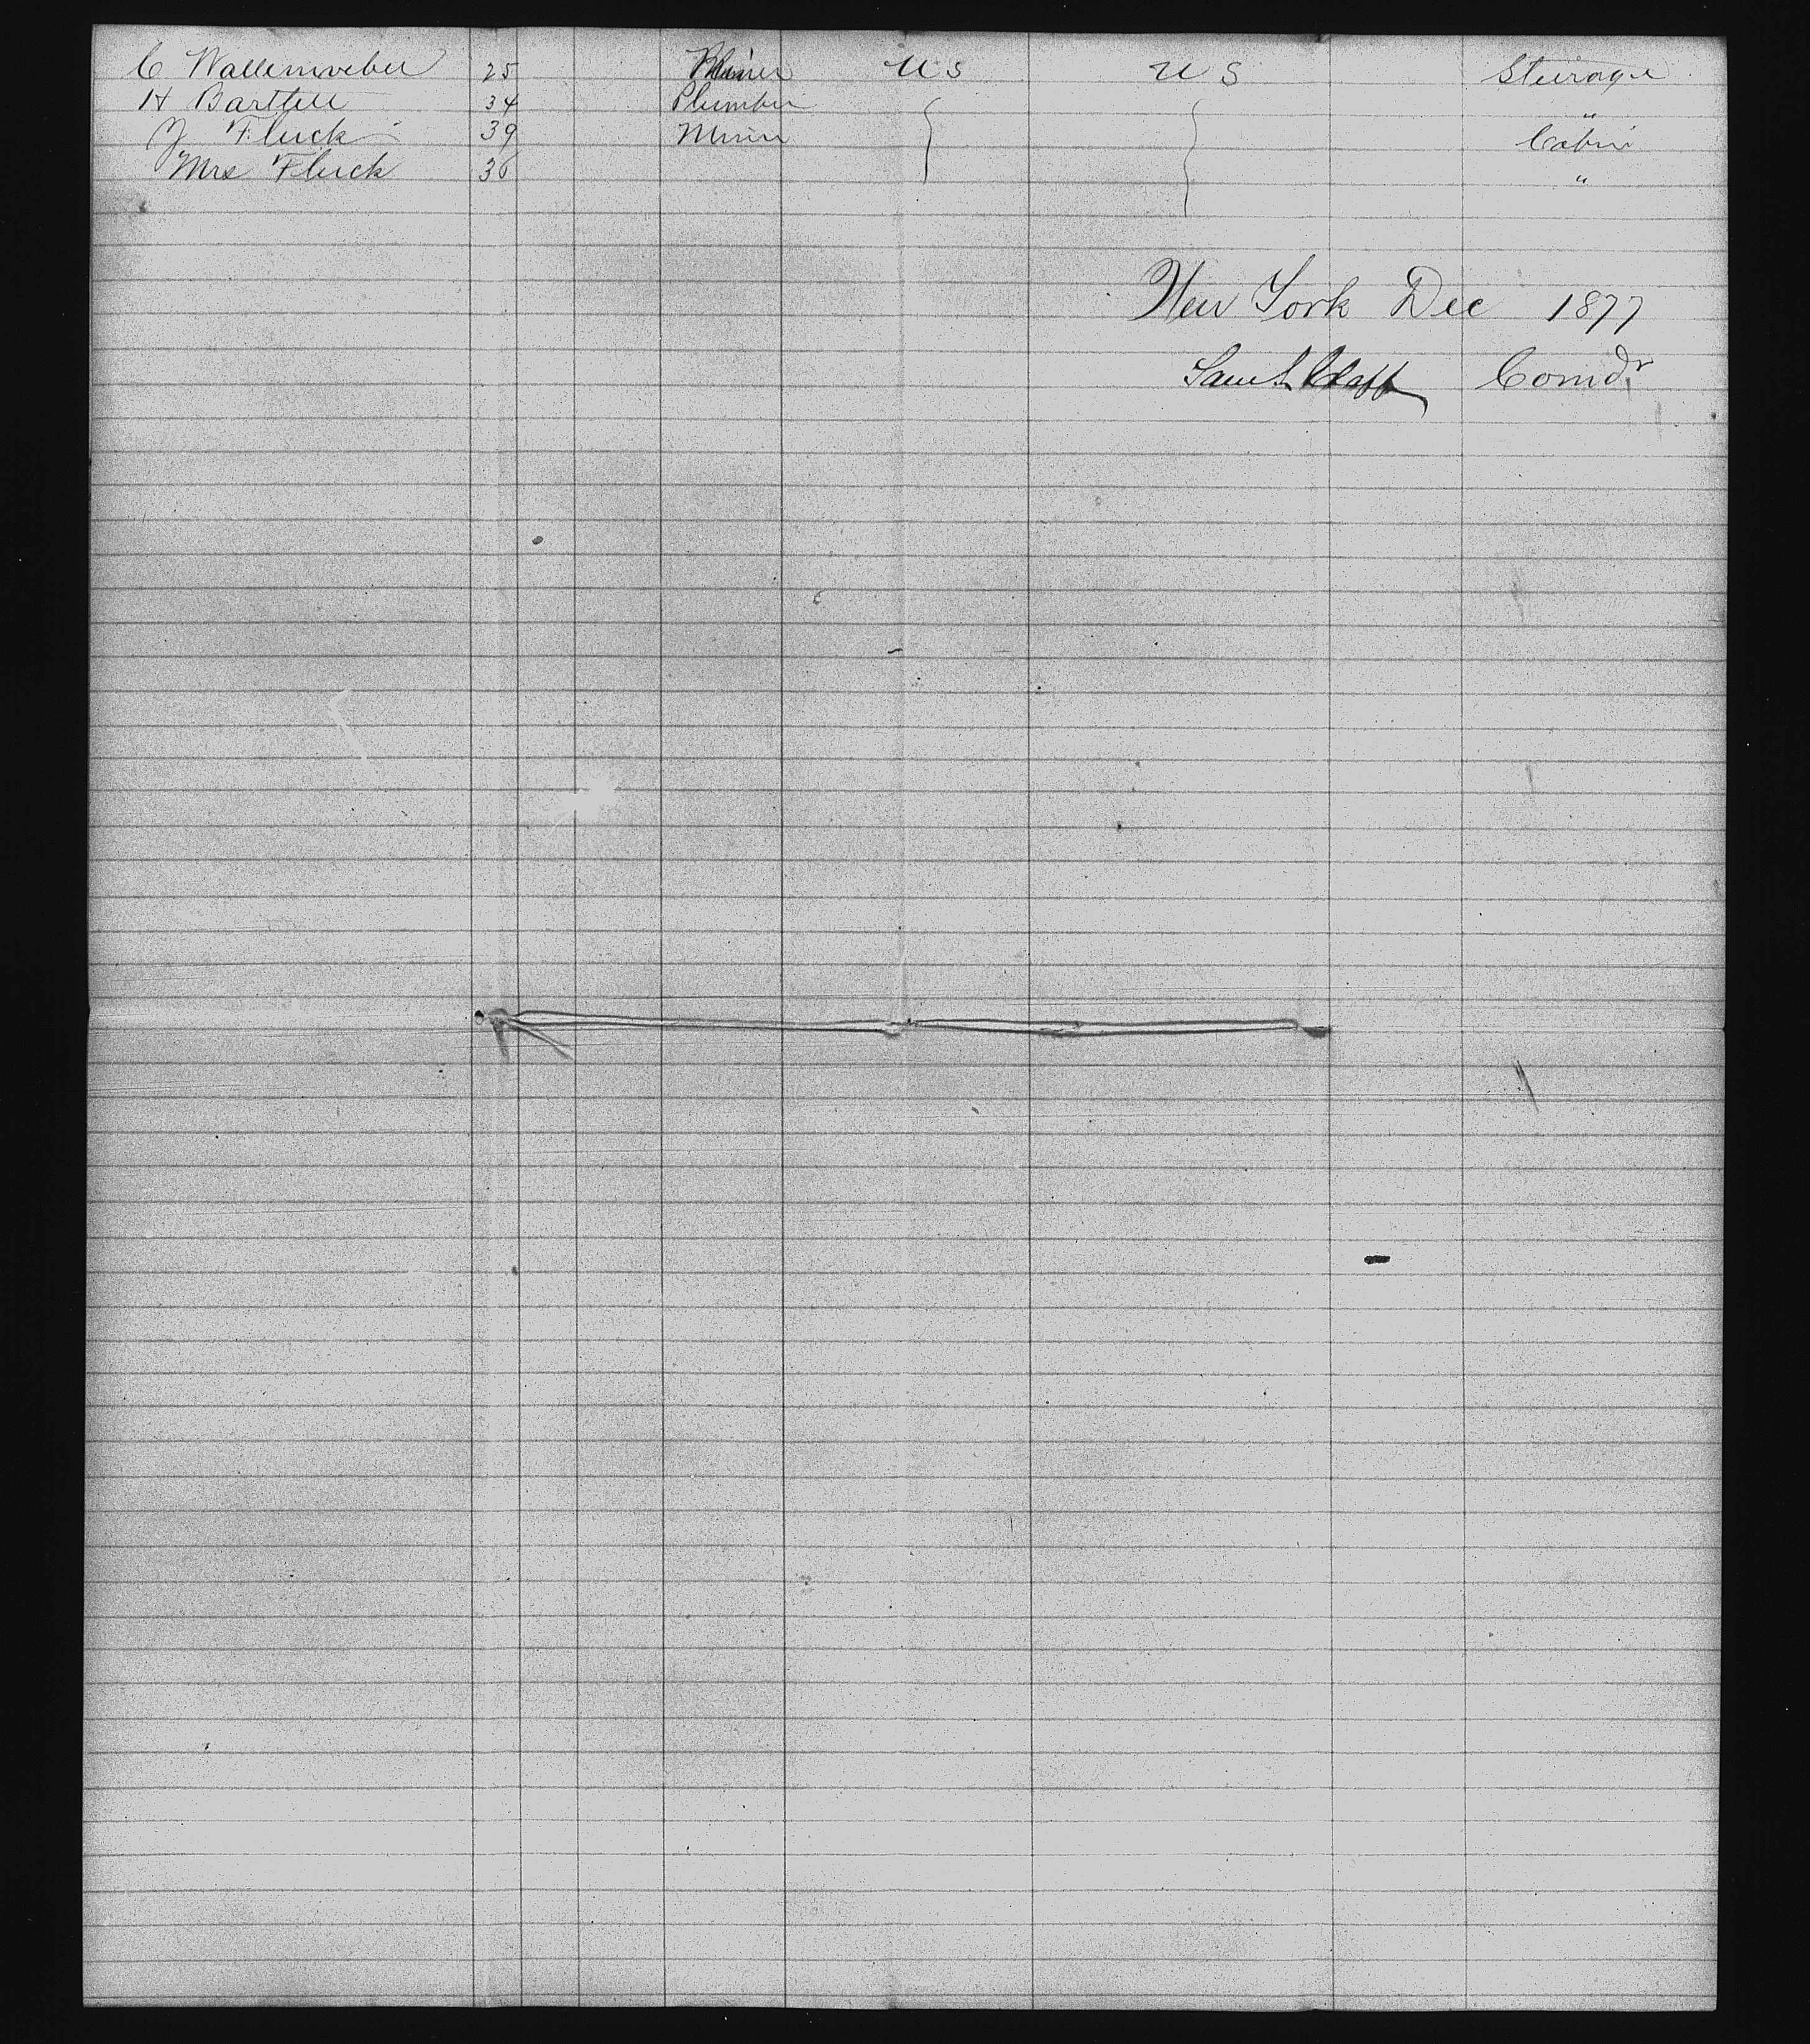 C Wallenweber 25 Miner U S U S Steerage
H Bartlett 34 Plumber "
J Fluck 39 Miner Cabin
Mrs Fluck 36 "
New York Dec 1877
Saml Comdr